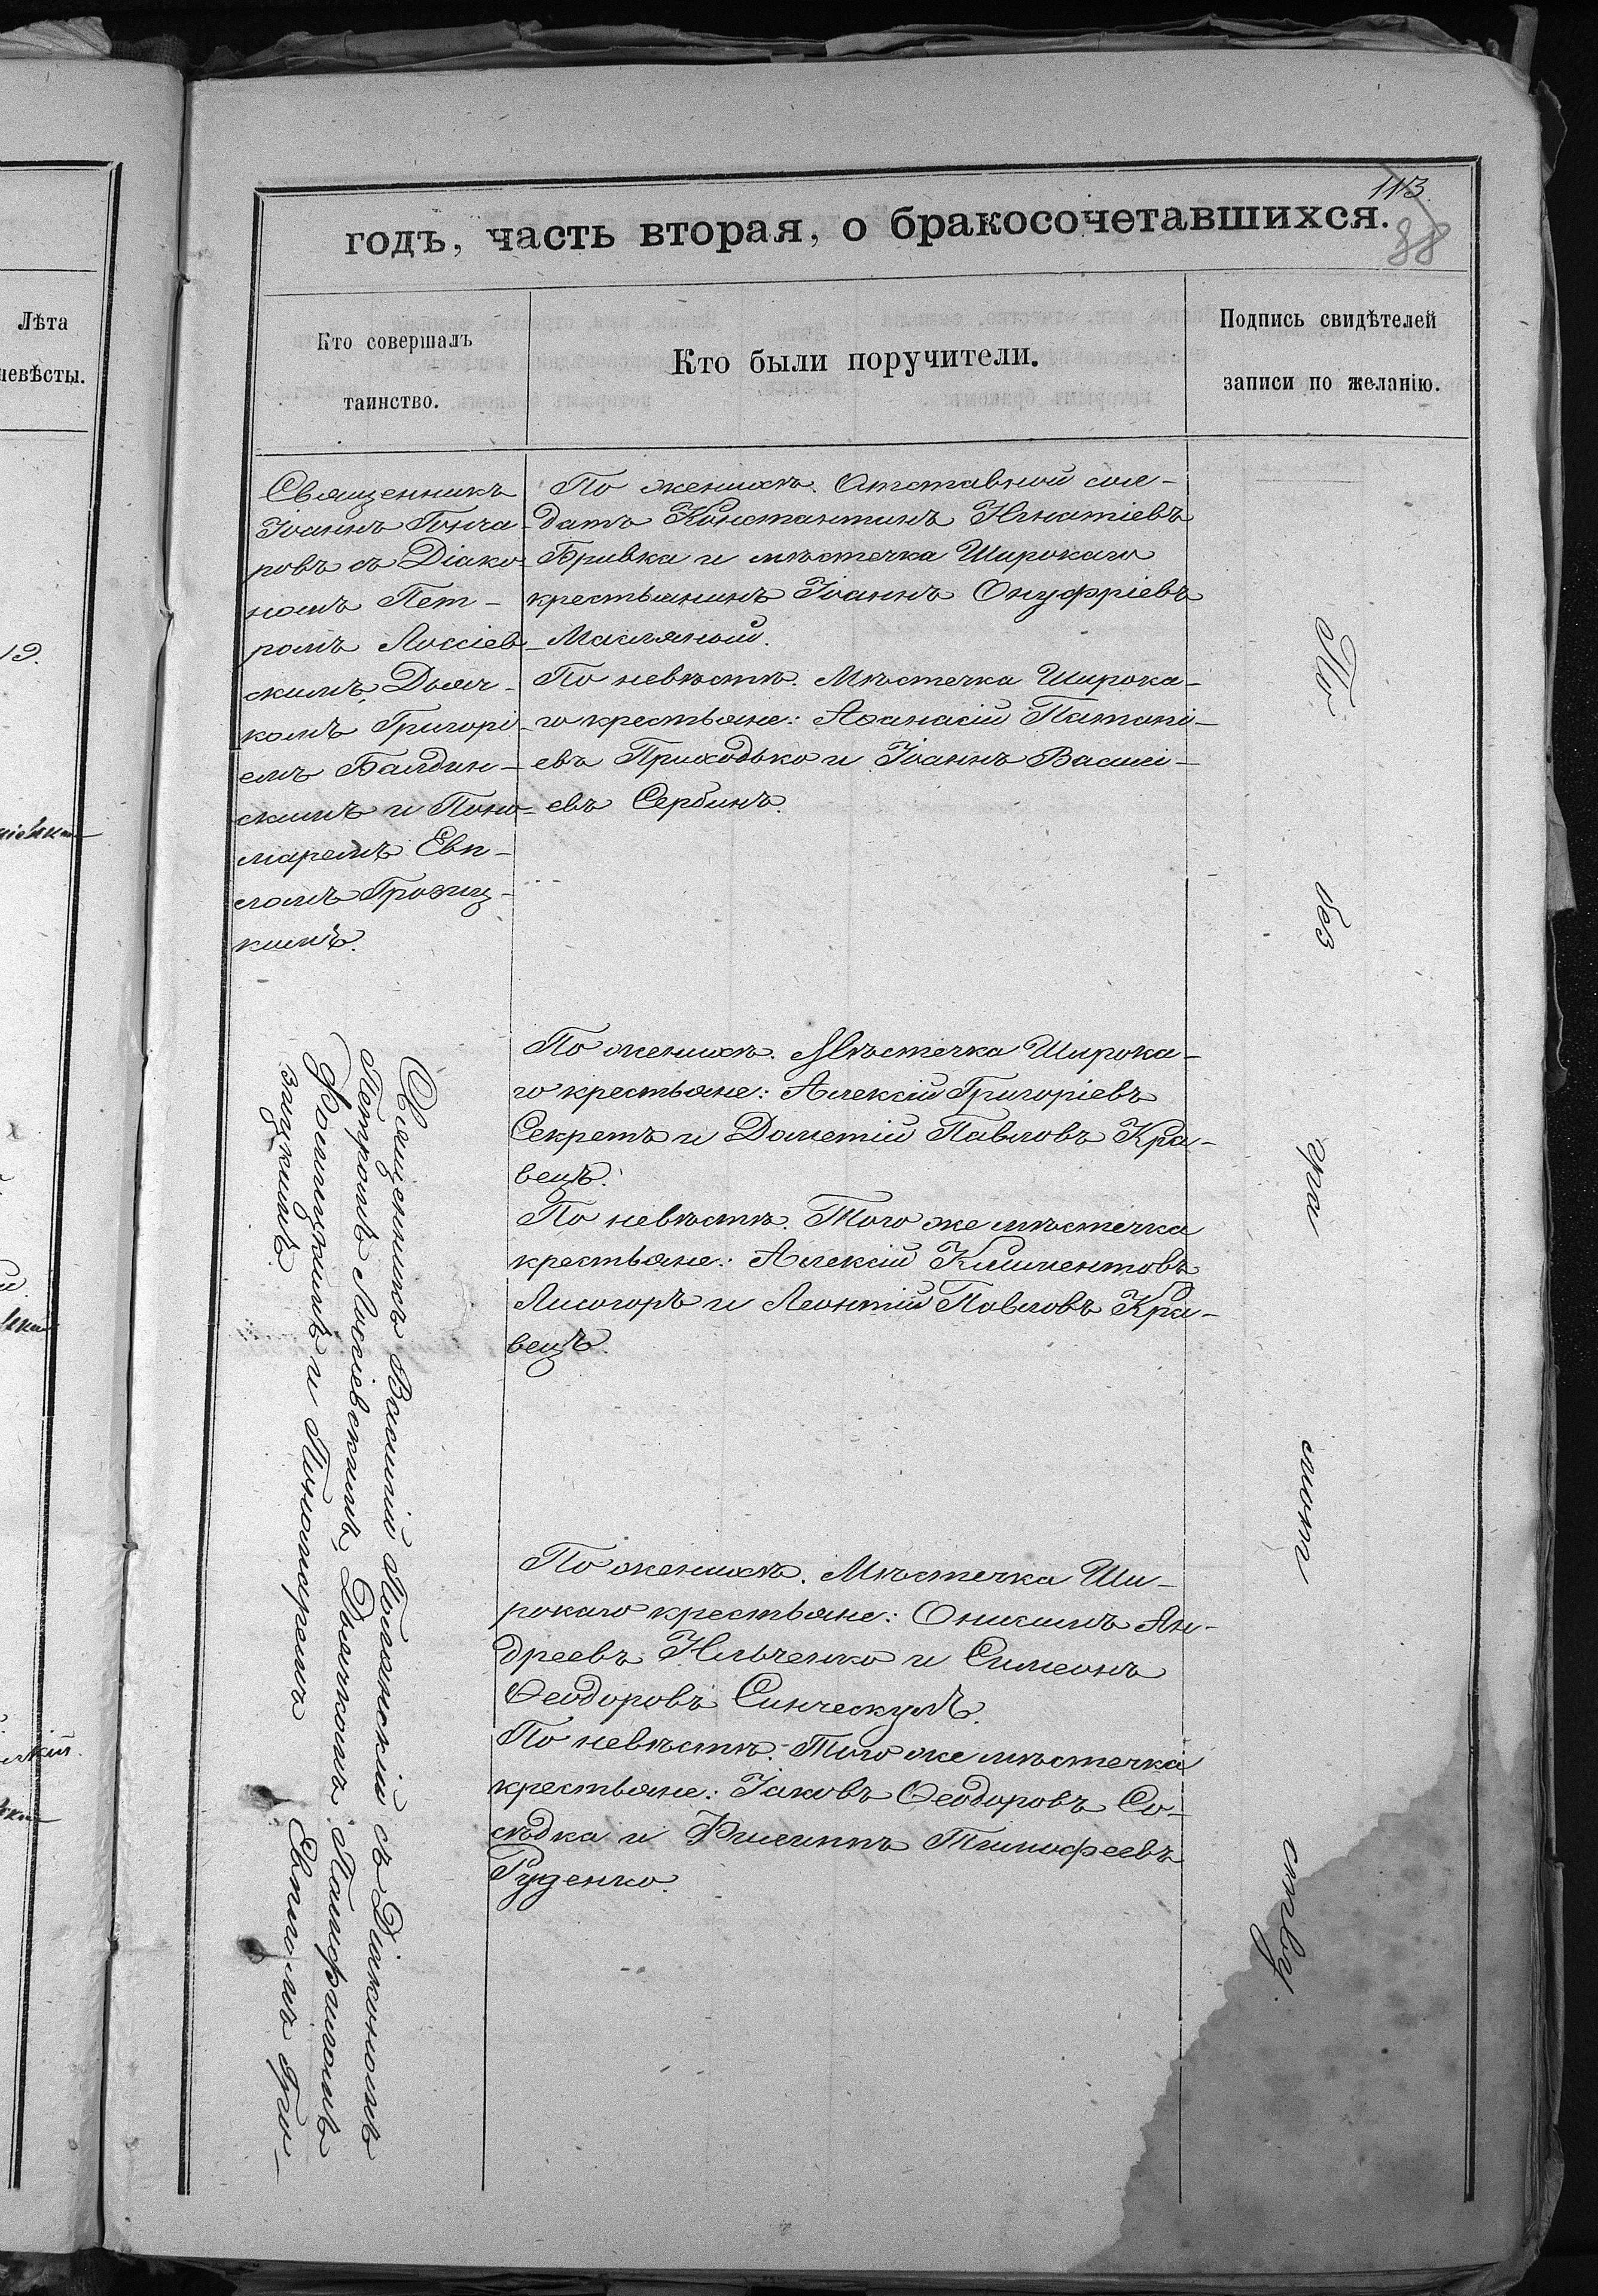 Лѣта
невѣсты.
19.
113.
88
годъ, часть вторая, о бракосочетавшихся.
Кто совершалъ
таинство.
Кто были поручители.
Подпись свидѣтелей
записи по желанію.
Священникъ
Іоаннъ Гонча-
ровъ съ Діако-
номъ Пет-
ромъ Лоссіев-
скимъ, Дьяч-
комъ Григорі-
емъ Балдин-
скимъ и Поно-
маремъ Евп-
ломъ Грозиц-
кимъ.
По женихѣ. Отставной сол-
датъ Константинъ Игнатіевъ
Бривка и мѣстечка Широкаго
крестьянинъ Іоаннъ Онуфріевъ
Масляный.
По невѣстѣ. Мѣстечка Широка-
го крестьяне: Аѳанасій Патапі-
евъ Приходько и Іоаннъ Василі-
евъ Сербинъ.
Священникъ Василій Полянскій съ Діакономъ
Петромъ Лоссіевскимъ, Дьячкомъ Памфиломъ
и Пономаремъ Евпломъ Гро-
зицкимъ.
По женихѣ. Мѣстечка Широка-
го крестьяне: Алексій Григоріевъ
Секретъ и Дометій Павловъ Кра-
вецъ.
По невѣстѣ. Того же мѣстечка
крестьяне: Алексій Климентовъ
Лисогоръ и Леонтій Павловъ Кра-
вецъ.
По женихѣ. Мѣстечка Ши-
рокаго крестьяне: Онисимъ Ан-
дреевъ Ильченко и Симеонъ
Ѳеодоровъ Синческулъ.
По невѣстѣ. Того же мѣстечка
крестьяне: Іаковъ Ѳеодоровъ Со-
сѣдка и Филиппъ Тимофеевъ
Руденко.
По без гра мот ству.